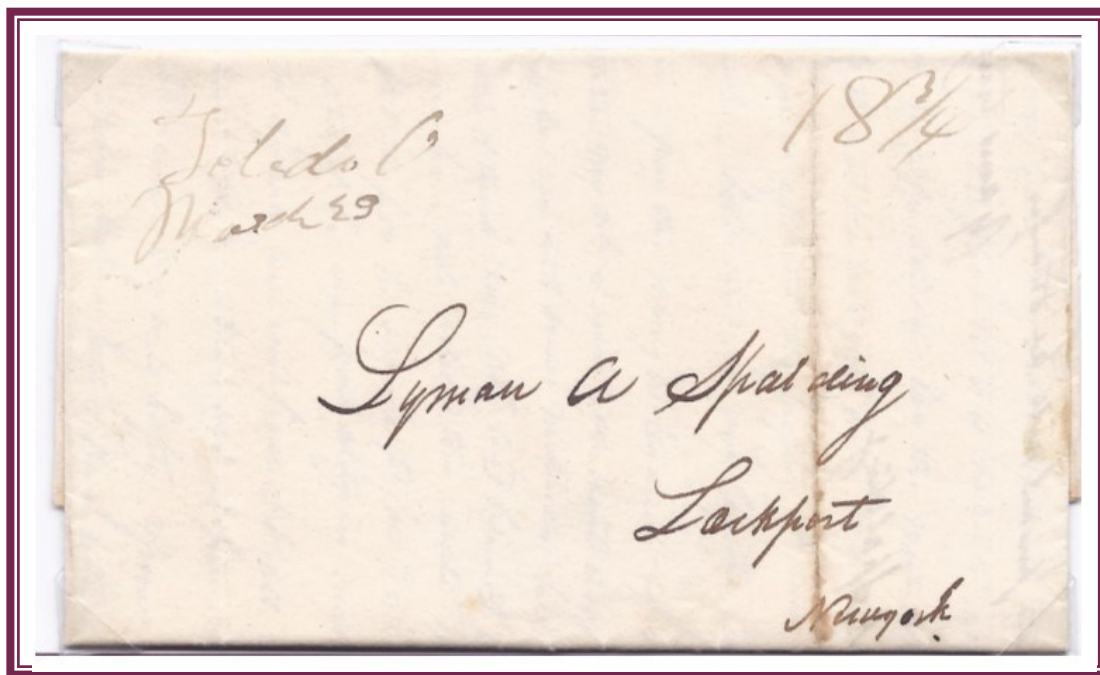 Toledo O
March 29
18 3/4
Lyman A Spalding
Lockport
Newyork